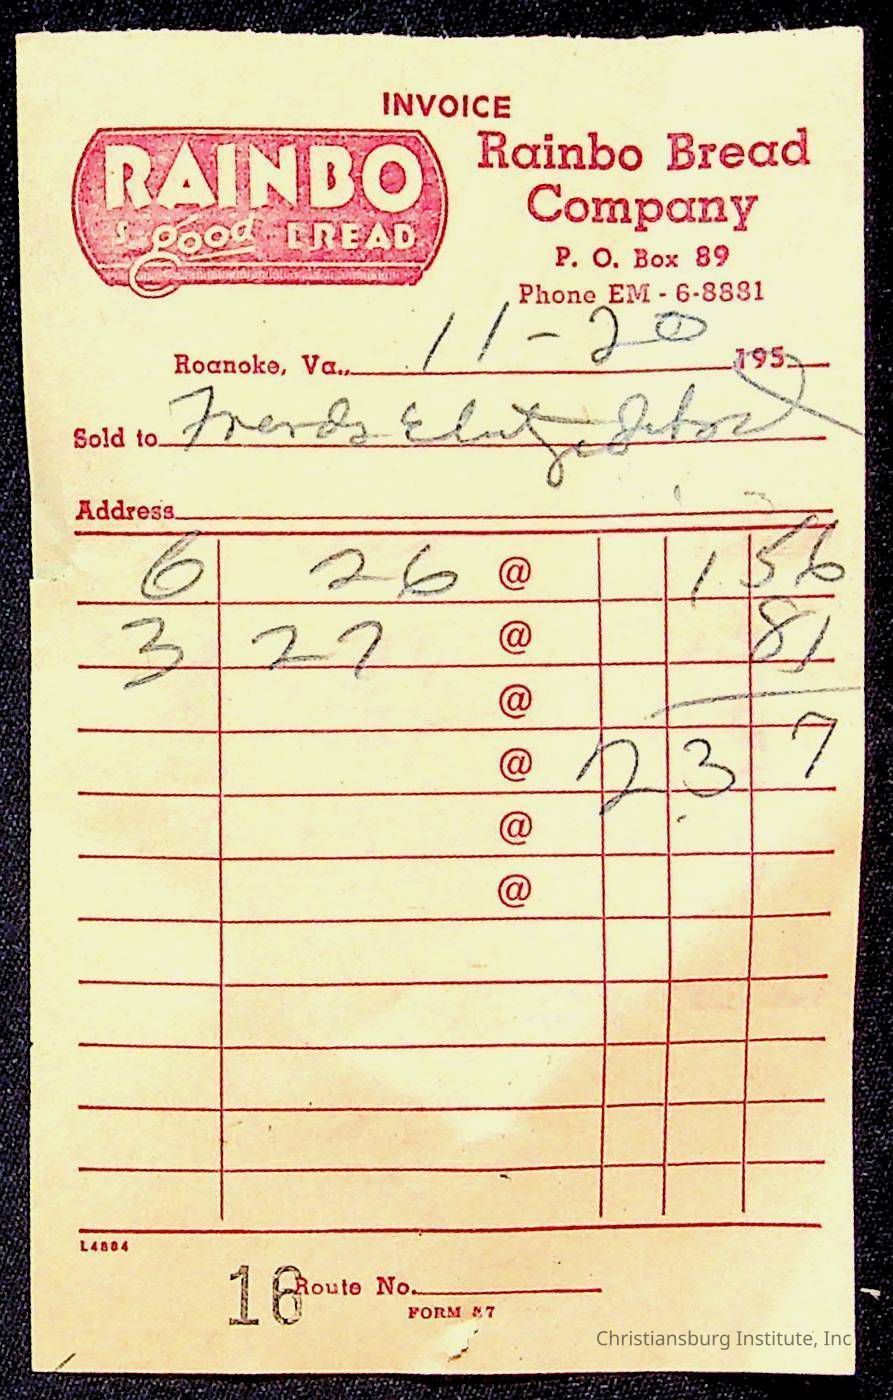 INVOICE
RAINBO
is good BREAD
Rainbo Bread
Company
P. O. Box 89
Phone EM - 6-8881
Roanoke, Va., 11-20 195
Sold to
Address
6 26 @ 1 56
3 27 @ 81
@
@ 2 3 7
@
@
L4884
16 Route No.
FORM 57
Christiansburg Institute, Inc